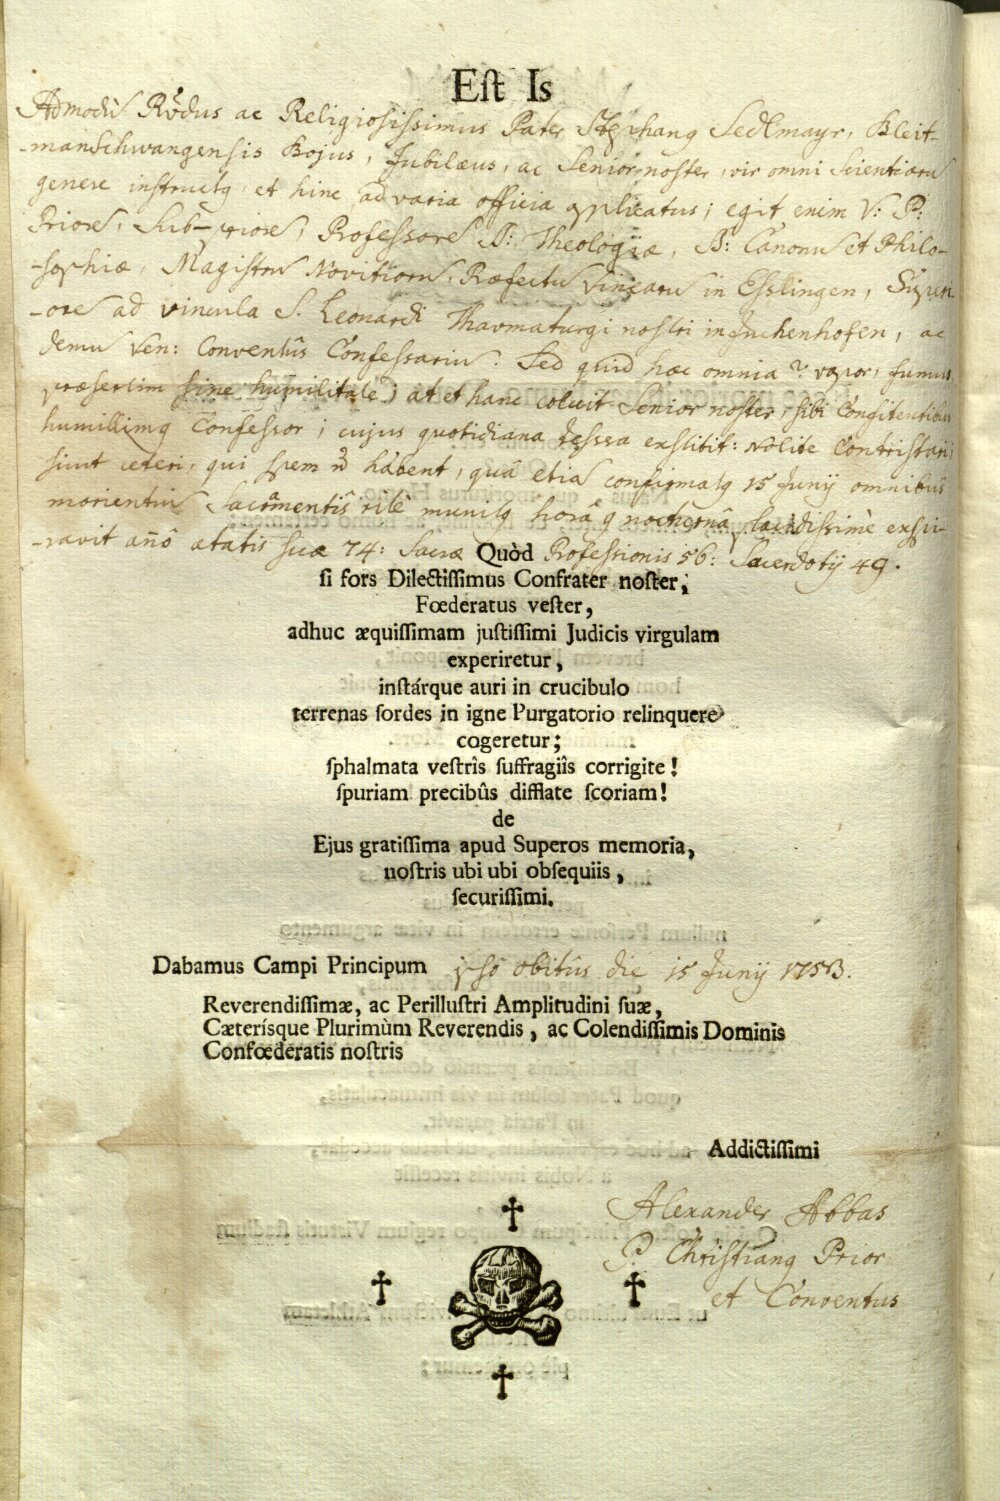 Eſt Is
Admodū Rv̄dus ac Religiosissimus Pater Stephang Sedlmayr, Bleit-
-manschwangensis Bojus, Jubilæus, ac Senior noster, vir omni Scientiarū
genere instructg, et hinc ad varia officia applicatus; egit enim V: P:
Priorē, Sub-priorē, Professorē S: Theologiæ, S: Canonū et Philo-
-sophiæ, Magistrū Novitiorū, Præfectū Vinearū in Esslingen, Superi-
-orē ad vincula S. Leonardi Thavmaturgi nostri in Inchenhofen, ac
demū Ven: Conventûs Confessariū. Sed quid hæc omnia? vapor, fumus
præsertim sine humilitate at et hanc coluit Senior noster, sibi Confitentibus
humillimg Confessor; cujus quotidiana tessera exstitit: Nolite Contristari,
sicut ceteri, qui spem n̄ habent, quâ etiā confirmatg 15 Junij omnibus
morientiū Sacramentis ritè munitg horâ 9 nocturnâ placidissimè exspi-
-ravit añô ætatis suæ 74: Sacræ Quòd Professionis 56: Sacerdotij 49.
ſi fors Dilectiſſimus Confrater noſter,
Fœderatus veſter,
adhuc æquiſſimam juſtiſſimi Judicis virgulam
experiretur,
inſtárque auri in crucibulo
terrenas ſordes in igne Purgatorio relinquere
cogeretur;
ſphalmata veſtrîs ſuffragiîs corrigite!
ſpuriam precibûs difflate ſcoriam!
de
Ejus gratiſſima apud Superos memoria,
noſtris ubi ubi obſequiis,
ſecuriſſimi.
Dabamus Campi Principum ipsô obitûs die 15 Junij 1753.
Reverendiſſimæ, ac Perilluſtri Amplitudini ſuæ,
Cæterísque Plurimùm Reverendis, ac Colendiſſimis Dominis
Confœderatis noſtris
Addictiſſimi
Alexander Abbas
P. Christiang Prior
et Conventus